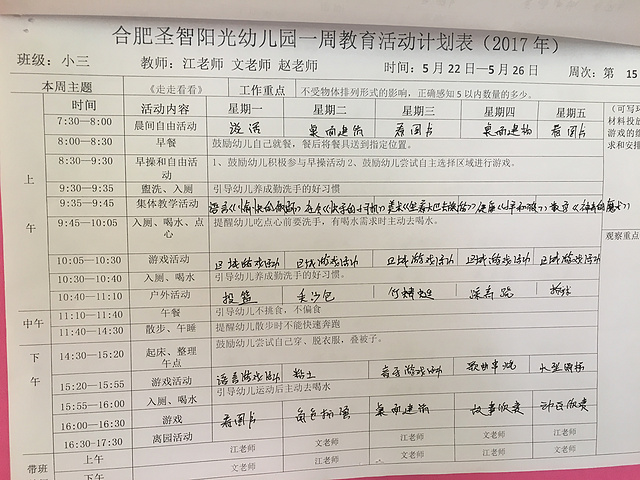 合肥圣智阳光幼儿园一周教育活动计划表（2017年）
班级：小三 教师：江老师 文老师 赵老师 时间：5月22日—5月26日 周次：第 15
本周主题 《走走看看》 工作重点 不受物体排列形式的影响，正确感知5以内数量的多少。
时间 活动内容 星期一 星期二 星期三 星期四 星期五
7:30—8:00 晨间自由活动 桌面建筑 看图片 桌面建构 看图片
8:00—8:30 早餐 鼓励幼儿自己就餐，餐后将餐具送到指定位置。
8:30—9:30 早操和自由活动 1、鼓励幼儿积极参与早操活动2、鼓励幼儿尝试自主选择区域进行游戏。
9:30—9:35 盥洗、入厕 引导幼儿养成勤洗手的好习惯
9:35—9:45 集体教学活动
9:45—10:05 入厕、喝水、点心 提醒幼儿吃点心前要洗手，有喝水需求时主动去喝水。
10:05—10:30 游戏活动 区域游戏活动 区域游戏活动 区域游戏活动 区域游戏活动 区域游戏活动
10:30—10:40 入厕、喝水 引导幼儿养成勤洗手的好习惯。
10:40—11:10 户外活动 投篮 丢沙包
11:10—11:40 午餐 引导幼儿不挑食，不偏食
11:40—14:30 散步、午睡 提醒幼儿散步时不能快速奔跑
14:30—15:20 起床、整理 午点 鼓励幼儿尝试自己穿、脱衣服，叠被子。
15:20—15:55 游戏活动 语言游戏活动 粘土 音乐游戏活动 歌曲串烧
15:55—16:00 入厕、喝水 引导幼儿运动后主动去喝水
16:00—16:30 游戏 看图片 角色扮演 桌面建筑 故事欣赏 动画欣赏
16:30-17:30 离园活动
上午
中午
下午
带班 上午 江老师 文老师 江老师 文老师 江老师
下午 文老师 江老师 文老师 江老师 文老师
（可写环
材料投放
游戏的组
求和安排
观察重点